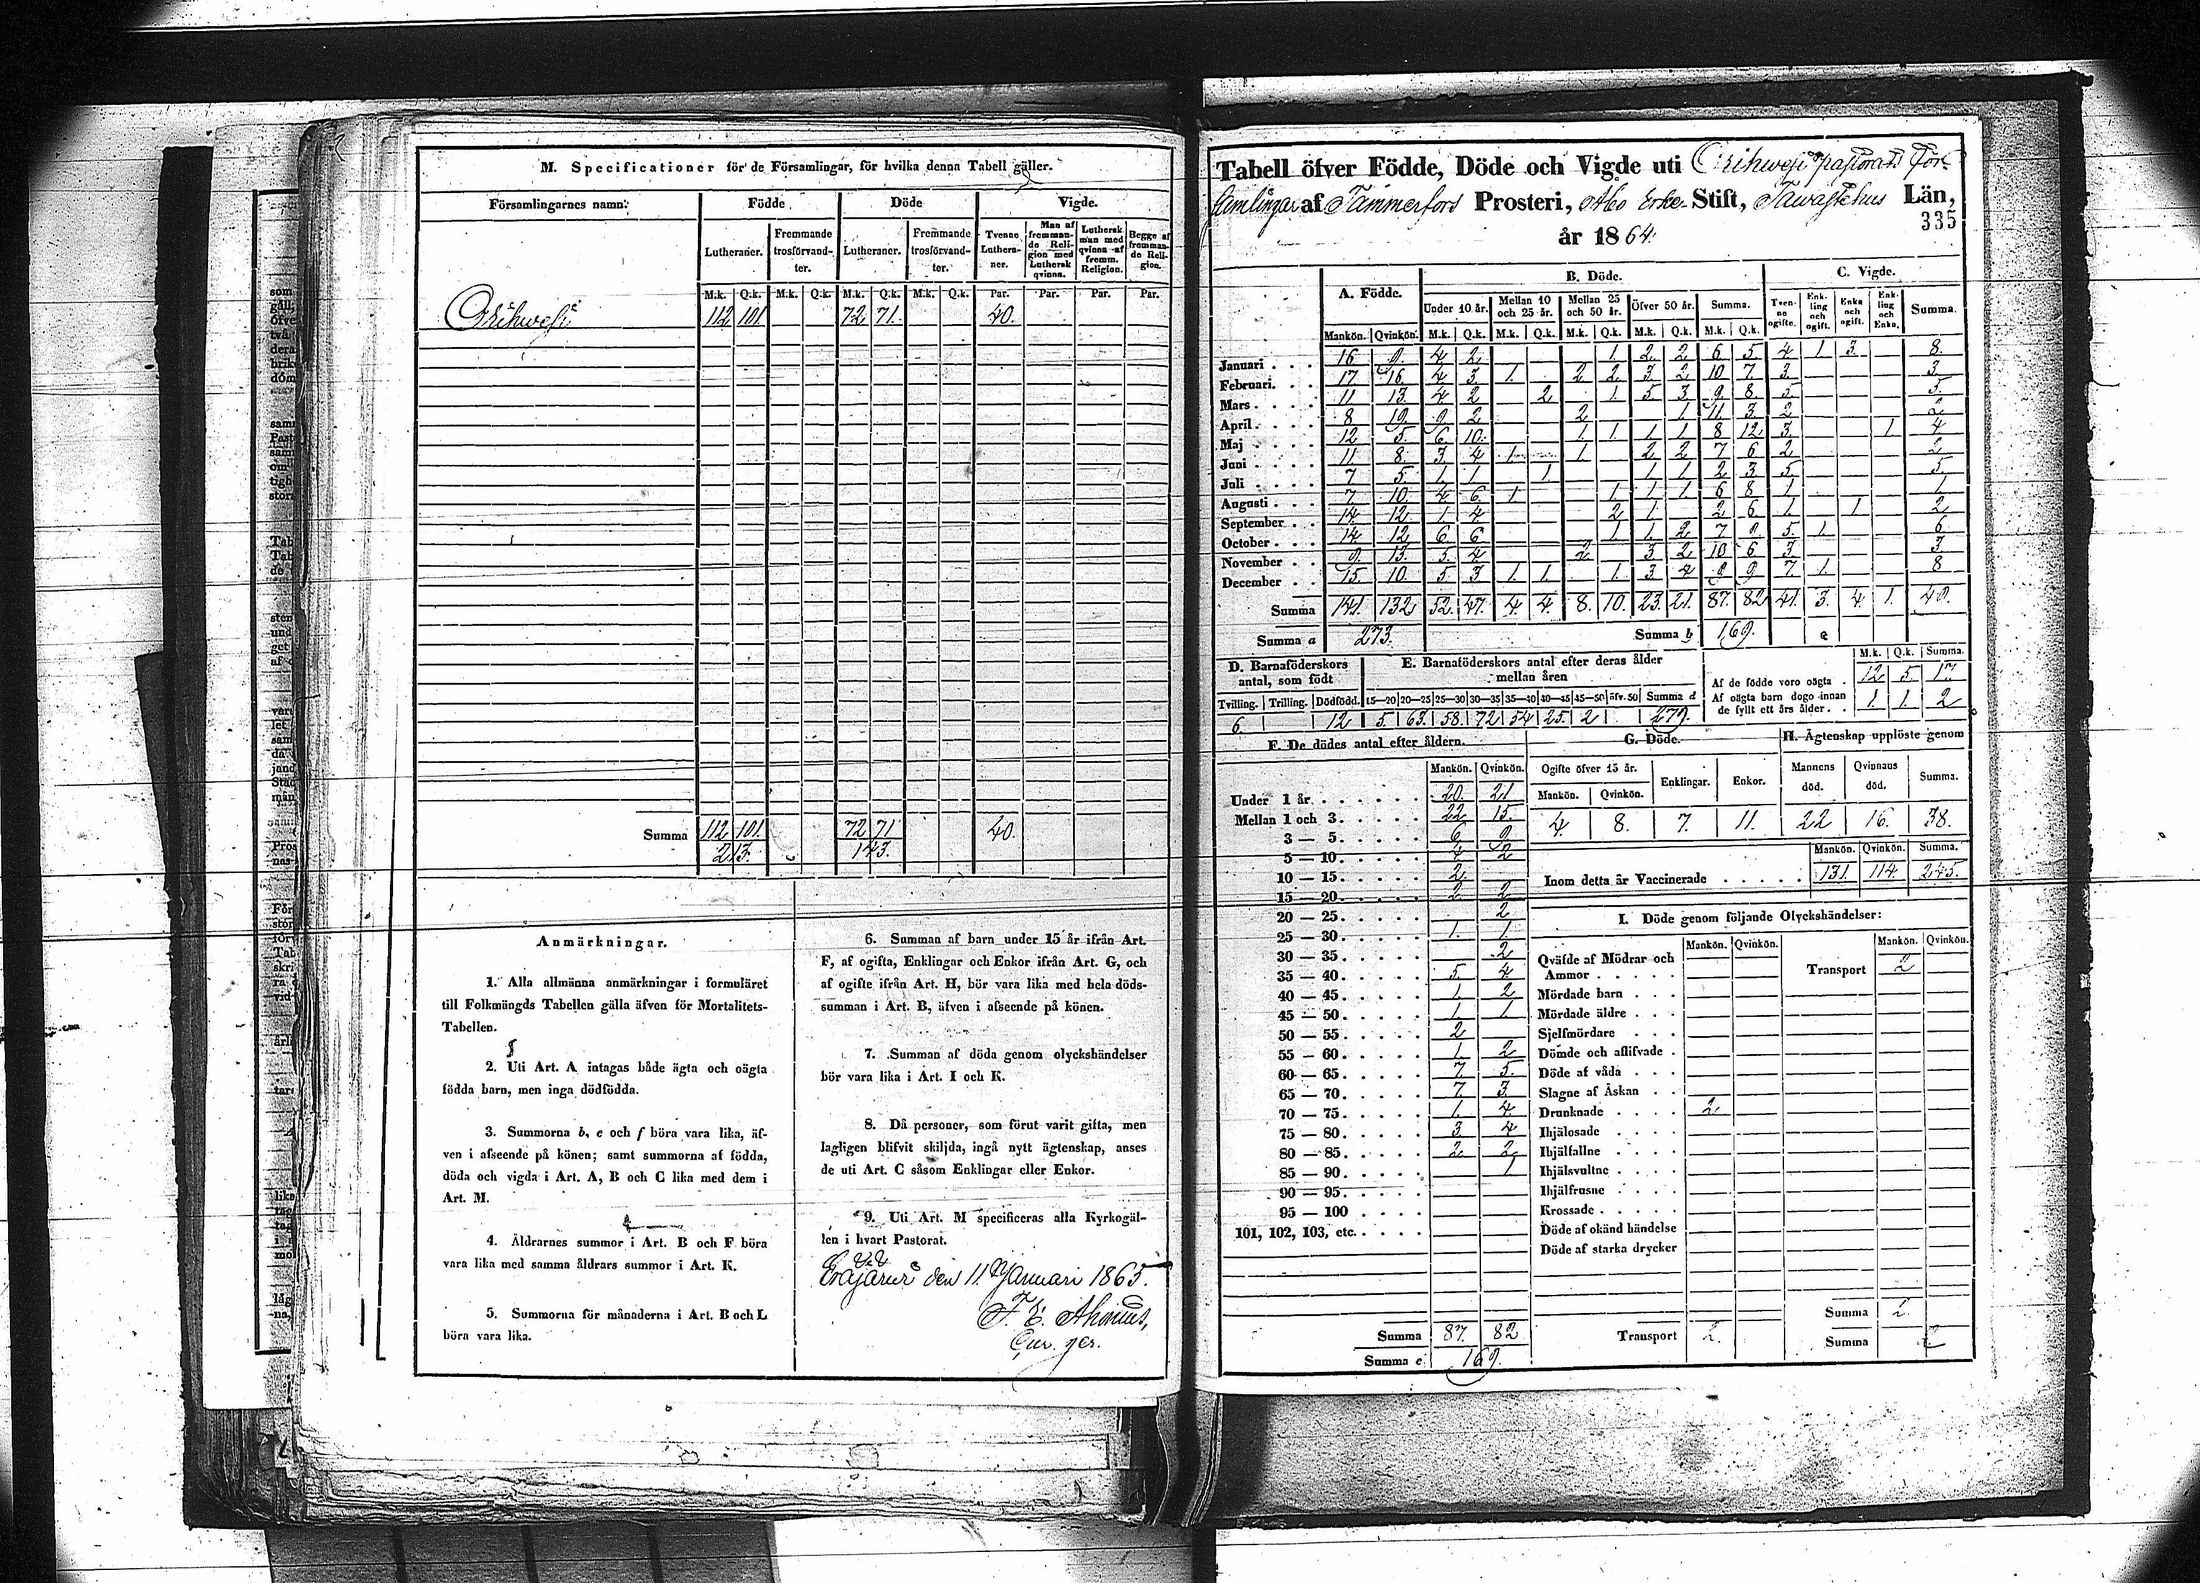 M. Specificationer för de Församlingar, för hvilka denna Tabell gäller.
Församlingarnes namn: Födde. Döde Vigde.
Lutheraner. Fremmande trosförvandter. Lutheraner. Fremmande trosförvandter. Tvenne Lutheraner. Man af fremmande Religion med Luthersk qvinna. Luthersk man med qvinna af fremm. Religion. Begge af fremmande Religion.
M.k. Q.k. M.k. Q.k. M.k. Q.k. M.k. Q.k. Par. Par. Par. Par.
Orihwesi 112 101 72 71. 40.
Summa 112 101. 72 71 40.
213. 143.
Anmärkningar.
1. Alla allmänna anmärkningar i formuläret
till Folkmängds Tabellen gälla äfven för Mortalitets-
Tabellen.
2. Uti Art. A intagas både ägta och oägta
födda barn, men inga dödfödda.
3. Summorna b, e och f böra vara lika, äf-
ven i afseende på könen; samt summorna af födda,
döda och vigda i Art. A, B och C lika med dem i
Art. M.
4. Åldrarnes summor i Art. B och F böra
vara lika med samma åldrars summor i Art. K.
5. Summorna för månaderna i Art. B och L
böra vara lika.
6. Summan af barn under 15 år ifrån Art.
F, af ogifta, Enklingar och Enkor ifrån Art. G, och
af ogifte ifrån Art. H, bör vara lika med hela döds-
summan i Art. B, äfven i afseende på könen.
7. Summan af döda genom olyckshändelser
bör vara lika i Art. I och K.
8. Då personer, som förut varit gifta, men
lagligen blifvit skiljda, ingå nytt ägtenskap, anses
de uti Art. C såsom Enklingar eller Enkor.
9. Uti Art. M specificeras alla Kyrkogäl-
len i hvart Pastorat.
Eräjärvi den 11 Januari 1865.
Tabell öfver Födde, Döde och Vigde uti Orihwesi pastorats För-
samlingar af Tammerfors Prosteri, Åbo Erke- Stift, Tawastehus Län,
335
år 1864.
A. Födde. B. Döde. C. Vigde.
Under 10 år. Mellan 10 och 25 år. Mellan 25 och 50 år. Öfver 50 år. Summa. Tvenne ogifte. Enkling och ogift. Enka och ogift. Enkling och Enka. Summa.
Mankön. Qvinkön. M.k. Q.k. M.k. Q.k. M.k. Q.k. M.k. Q.k. M.k. Q.k.
Januari 16 9. 4 2 1 2 2 6 5 4 1 3. 8.
Februari. 17 16. 4 3. 1. 2 2. 3 2 10 7. 3. 3.
Mars 11 13. 4 2 2 1 5 3 9. 8. 5. 5.
April 8 19. 9. 2. 2. 1 11 3. 2 2
Maj 12 5. 6. 10. 1 1 1 1 8 12 3. 1 4
Juni 11 8. 3. 4 1. 1 2 2 7 6 2 2
Juli 7 5. 1. 1 1 1 1 2 3 5 5.
Augusti 7 10. 4 6. 1 1. 1 1 6 8 1 1
September 14. 12. 1 4 2 1. 2 6 1 1 2
October 14 12. 6. 6 1 1. 2. 7 9. 5. 1. 6
November 9. 13. 5. 4 2 3 2 10 6 3 3.
December 15. 10. 5. 3 1. 1. 1. 3 4 9 9 7. 1. 8
Summa 141. 132 52. 47. 4 4. 8. 10. 23. 21. 87. 82 41. 3. 4. 1. 49.
Summa a 273. Summa b 169.
D. Barnaföderskors antal, som födt
E. Barnaföderskors antal efter deras ålder mellan åren
M.k. Q.k. Summa.
Af de födde voro oägta . 12 5. 17.
Af oägta barn dogo innan de fyllt ett års ålder. . 1. 1. 2
Tvilling. Trilling. Dödfödd. 15—20 20—25 25—30 30—35 35—40 40—45 45—50 öfv. 50 Summa d
6. 12 5. 63. 58. 72 54 25. 2 279.
F. De dödes antal efter åldern.
Mankön. Qvinkön.
Under 1 år 20. 21
Mellan 1 och 3. 22 15.
3 — 5. 6 9
5 — 10. 4 2
10 — 15. 2.
15 — 20. 2 2
20 — 25. 2
25 — 30. 1. 1.
30 — 35. 2
35 — 40. 5 4
40 — 45. 1 2
45 — 50. 1 1
50 — 55. 2
55 — 60. 1. 2
60 — 65. 7. 5.
65 — 70. 7. 3.
70 — 75. 1. 4
75 — 80. 3 4
80 — 85. 2. 2.
85 — 90. 1
90 — 95.
95 — 100
101, 102, 103, etc.
Summa 87. 82
Summa e. 169.
G. Döde.
Ogifte öfver 15 år. Enklingar. Enkor.
Mankön. Qvinkön.
4. 8. 7. 11.
H. Ägtenskap upplöste genom
Mannens död. Qvinnans död. Summa.
22 16. 38.
Mankön. Qvinkön. Summa.
Inom detta år Vaccinerade 131. 114. 245.
I. Döde genom följande Olyckshändelser:
Mankön. Qvinkön. Mankön. Qvinkön.
Qväfde af Mödrar och
Ammor Transport 2
Mördade barn
Mördade äldre
Sjelfmördare
Dömde och aflifvade
Döde af våda
Slagne af Åskan
Drunknade 2.
Ihjälosade
Ihjälfallne
Ihjälsvultne
Ihjälfrusne
Krossade
Döde af okänd händelse
Döde af starka drycker
Summa 2.
Transport 2. Summa 2